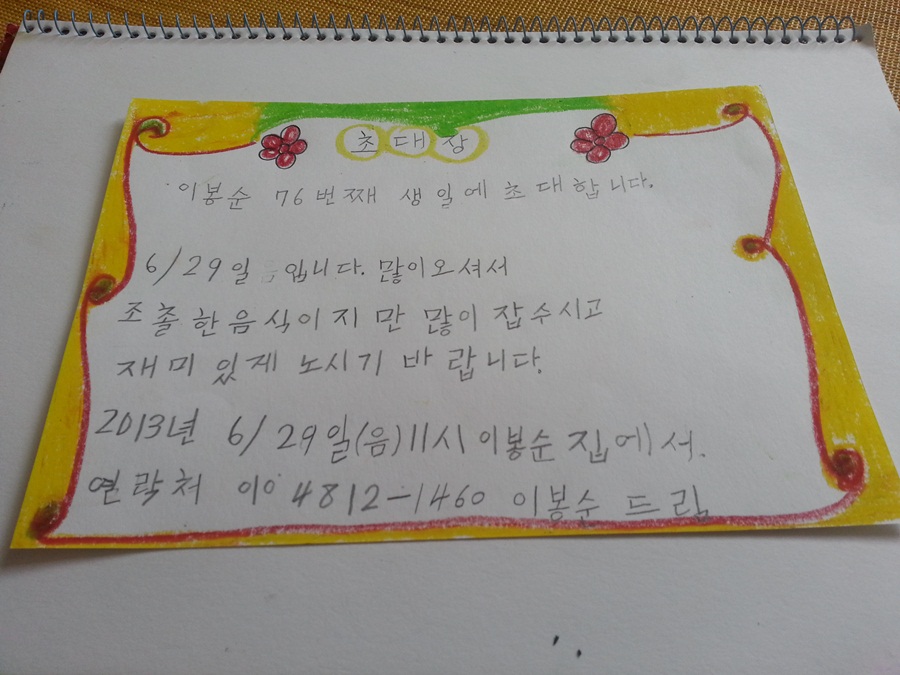 초대장
이봉순 76번째 생일에 초대합니다.
6/29일 입니다. 많이오셔서
조촐한음식이지만 많이 잡수시고
재미있게 노시기 바랍니다.
2013년 6/29일(음)11시 이봉순 집에서.
연락처 010 4812-1460 이봉순 드림